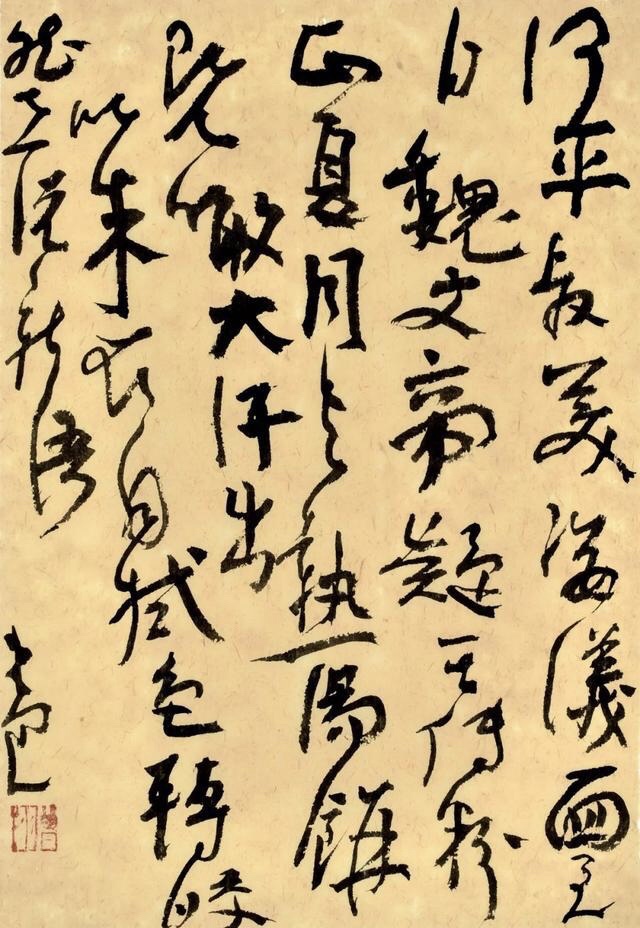 何平叔美姿儀面至
白魏文帝疑其傅粉
正夏月與熱湯餅
既噉大汗出
以朱衣自拭色轉皎
然世說新語